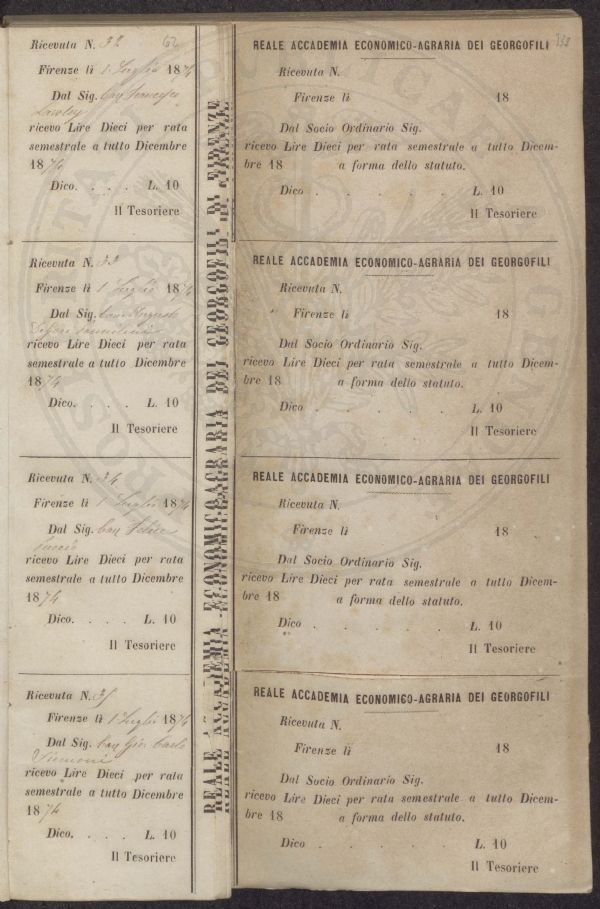 Ricevuta N. 32
Firenze li 1 Luglio 1874
Dal Sig. Cav Francesco
Lawley
ricevo Lire Dieci per rata
semestrale a tutto Dicembre
1874
Dico. . . . L. 10
Il Tesoriere
Ricevuta N. 33
Firenze li 1 Luglio 1874
Dal Sig.
ricevo Lire Dieci per rata
semestrale a tutto Dicembre
1874
Dico. . . . L. 10
Il Tesoriere
Ricevuta N. 34
Firenze li 1 Luglio 1874
Dal Sig. Cav Felice
ricevo Lire Dieci per rata
semestrale a tutto Dicembre
1874
Dico. . . . L. 10
Il Tesoriere
Ricevuta N. 35
Firenze li 1 Luglio 1874
Dal Sig. Cav Gio: Carlo
Siemoni
ricevo Lire Dieci per rata
semestrale a tutto Dicembre
1874
Dico. . . . L. 10
Il Tesoriere
REALE ACCADEMIA ECONOMICO-AGRARIA DEI GEORGOFILI DI FIRENZE
REALE ACCADEMIA ECONOMICO-AGRARIA DEI GEORGOFILI
Ricevuta N.
Firenze lì 18
Dal Socio Ordinario Sig.
ricevo Lire Dieci per rata semestrale a tutto Dicem-
bre 18 a forma dello statuto.
Dico . . . . . L. 10
Il Tesoriere
REALE ACCADEMIA ECONOMICO-AGRARIA DEI GEORGOFILI
Ricevuta N.
Firenze lì 18
Dal Socio Ordinario Sig.
ricevo Lire Dieci per rata semestrale a tutto Dicem-
bre 18 a forma dello statuto.
Dico . . . . . L. 10
Il Tesoriere
REALE ACCADEMIA ECONOMICO-AGRARIA DEI GEORGOFILI
Ricevuta N.
Firenze lì 18
Dal Socio Ordinario Sig.
ricevo Lire Dieci per rata semestrale a tutto Dicem-
bre 18 a forma dello statuto.
Dico . . . . . L. 10
Il Tesoriere
REALE ACCADEMIA ECONOMICO-AGRARIA DEI GEORGOFILI
Ricevuta N.
Firenze lì 18
Dal Socio Ordinario Sig.
ricevo Lire Dieci per rata semestrale a tutto Dicem-
bre 18 a forma dello statuto.
Dico . . . . . L. 10
Il Tesoriere